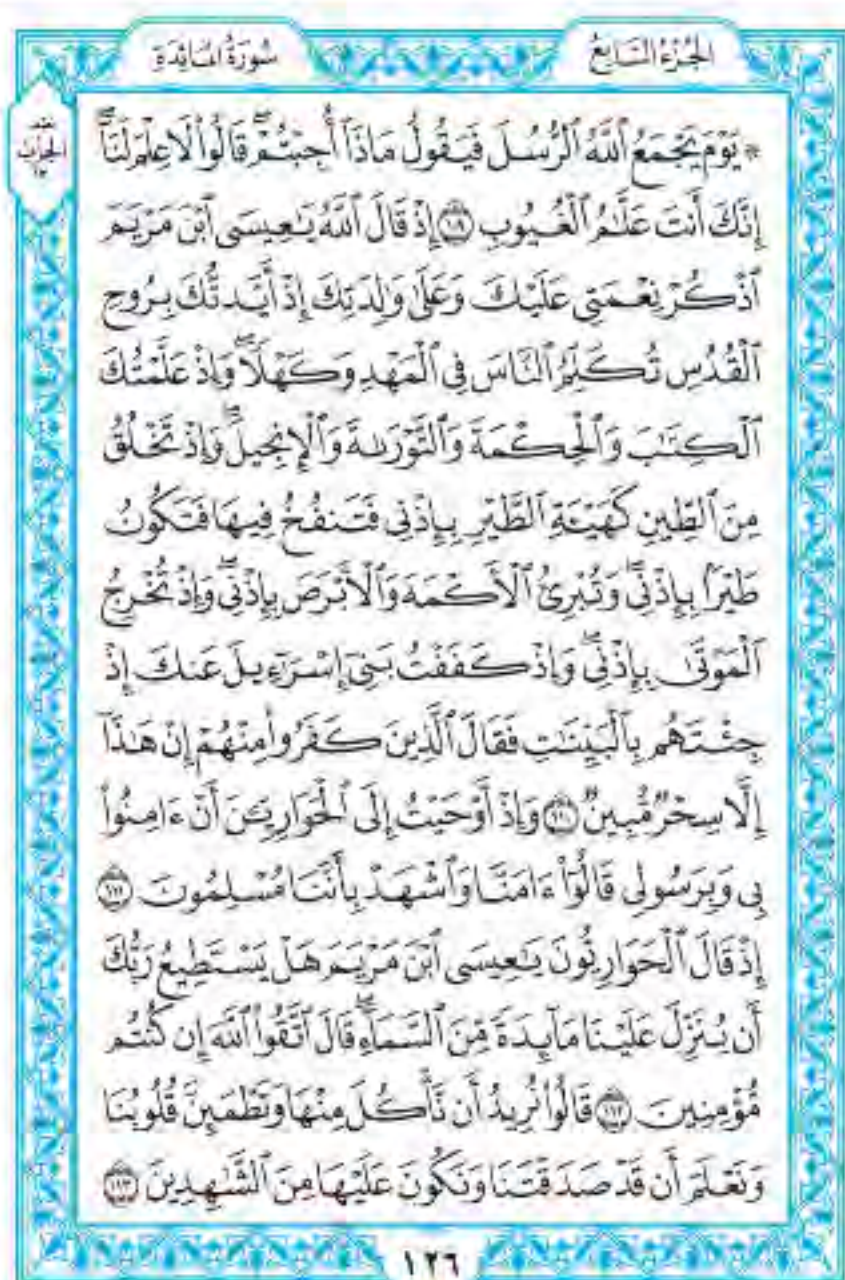 الجزء السابع
سورة المائدة
۞ يَوْمَ يَجْمَعُ ٱللَّهُ ٱلرُّسُلَ فَيَقُولُ مَاذَآ أُجِبْتُمْۖ قَالُواْ لَا عِلْمَ لَنَآۖ
إِنَّكَ أَنتَ عَلَّٰمُ ٱلْغُيُوبِ ١٠٩ إِذْ قَالَ ٱللَّهُ يَٰعِيسَى ٱبْنَ مَرْيَمَ
ٱذْكُرْ نِعْمَتِى عَلَيْكَ وَعَلَىٰ وَٰلِدَتِكَ إِذْ أَيَّدتُّكَ بِرُوحِ
ٱلْقُدُسِ تُكَلِّمُ ٱلنَّاسَ فِى ٱلْمَهْدِ وَكَهْلًاۖ وَإِذْ عَلَّمْتُكَ
ٱلْكِتَٰبَ وَٱلْحِكْمَةَ وَٱلتَّوْرَىٰةَ وَٱلْإِنجِيلَۖ وَإِذْ تَخْلُقُ
مِنَ ٱلطِّينِ كَهَيْـَٔةِ ٱلطَّيْرِ بِإِذْنِى فَتَنفُخُ فِيهَا فَتَكُونُ
طَيْرًۢا بِإِذْنِىۖ وَتُبْرِئُ ٱلْأَكْمَهَ وَٱلْأَبْرَصَ بِإِذْنِىۖ وَإِذْ تُخْرِجُ
ٱلْمَوْتَىٰ بِإِذْنِىۖ وَإِذْ كَفَفْتُ بَنِىٓ إِسْرَٰٓءِيلَ عَنكَ إِذْ
جِئْتَهُم بِٱلْبَيِّنَٰتِ فَقَالَ ٱلَّذِينَ كَفَرُواْ مِنْهُمْ إِنْ هَٰذَآ
إِلَّا سِحْرٌ مُّبِينٌ ١١٠ وَإِذْ أَوْحَيْتُ إِلَى ٱلْحَوَارِيِّـۧنَ أَنْ ءَامِنُواْ
بِى وَبِرَسُولِى قَالُوٓاْ ءَامَنَّا وَٱشْهَدْ بِأَنَّنَا مُسْلِمُونَ ١١١
إِذْ قَالَ ٱلْحَوَارِيُّونَ يَٰعِيسَى ٱبْنَ مَرْيَمَ هَلْ يَسْتَطِيعُ رَبُّكَ
أَن يُنَزِّلَ عَلَيْنَا مَآئِدَةً مِّنَ ٱلسَّمَآءِۖ قَالَ ٱتَّقُواْ ٱللَّهَ إِن كُنتُم
مُّؤْمِنِينَ ١١٢ قَالُواْ نُرِيدُ أَن نَّأْكُلَ مِنْهَا وَتَطْمَئِنَّ قُلُوبُنَا
وَنَعْلَمَ أَن قَدْ صَدَقْتَنَا وَنَكُونَ عَلَيْهَا مِنَ ٱلشَّٰهِدِينَ ١١٣
١٢٦